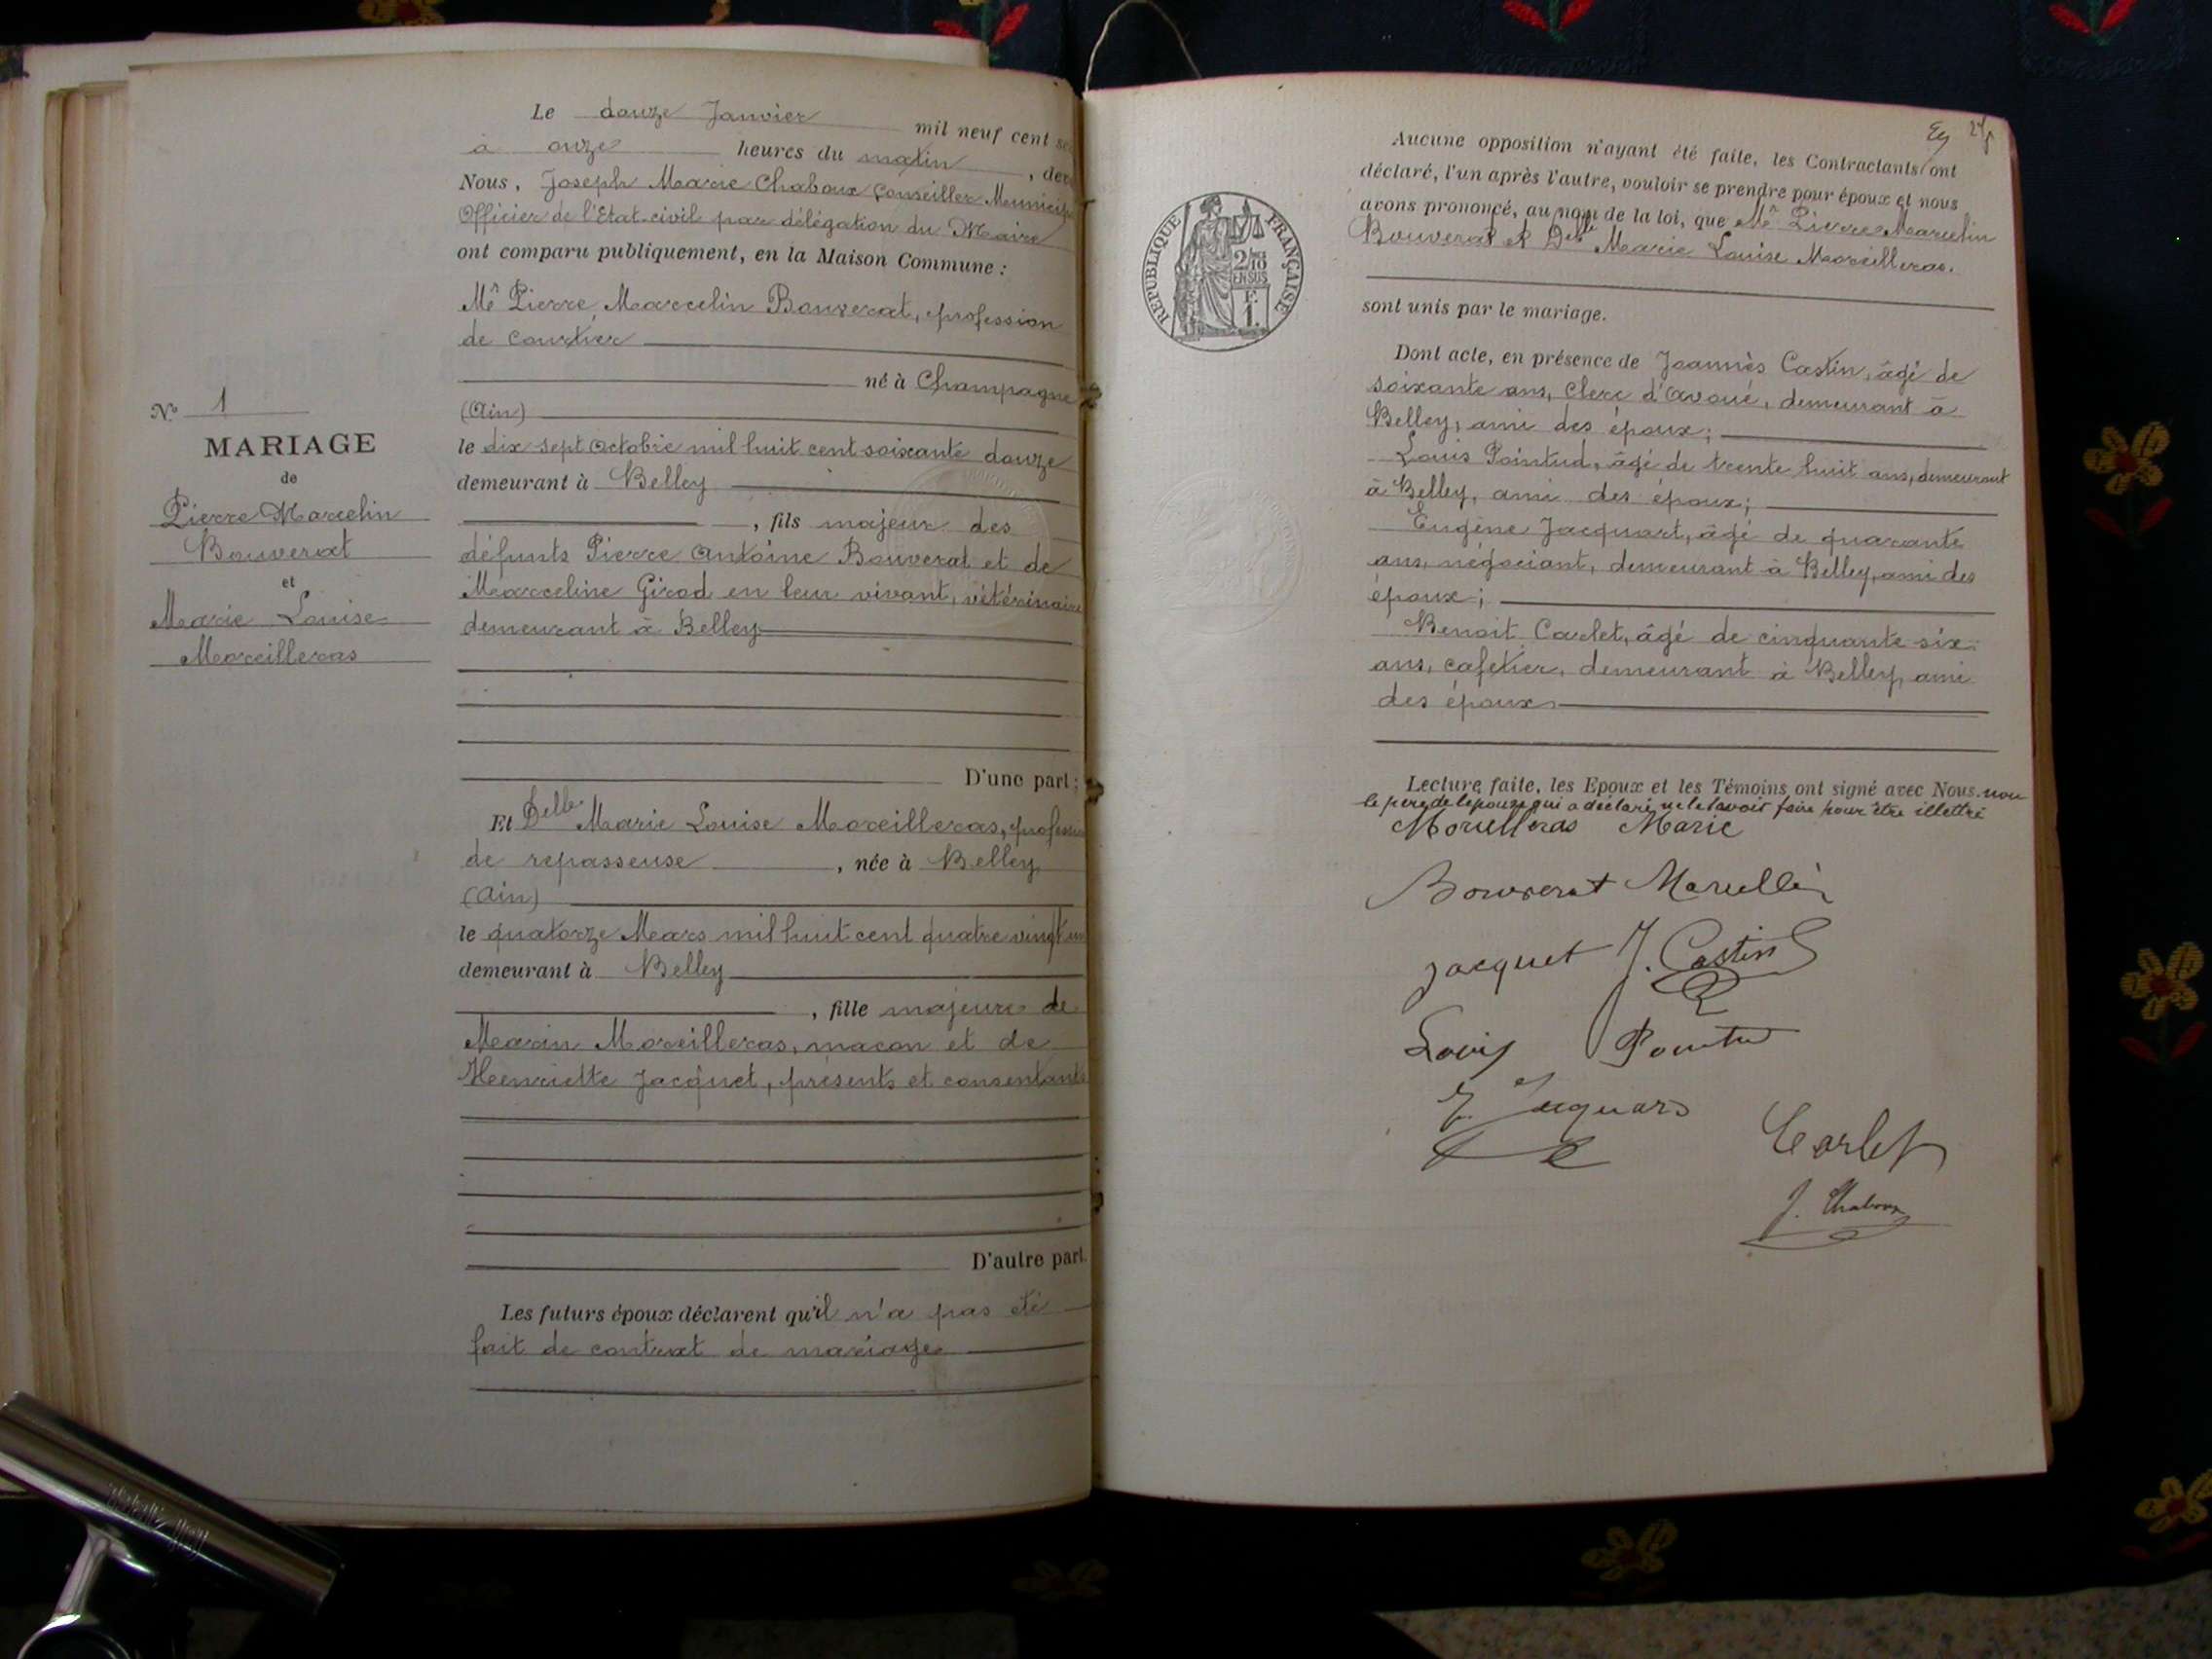 Le douze Janvier mil neuf cent
à onze heures du matin
Nous, Joseph Marie Chaboux Conseiller Municip
Officier de l'Etat-civil par délégation du Maire
ont comparu publiquement, en la Maison Commune :
Mr Pierre, Marcelin Bouverat, profession
de courtier
né à Champagne
(Ain)
le dix sept Octobre mil huit cent soixante douze
demeurant à Belley
, fils majeur des
défunts Pierre Antoine Bouverat et de
Marceline Girod en leur vivant, vétérinaire
demeurant à Belley
D'une part ;
Et Delle Marie Louise Morceilleras, profession
de repasseuse, née à Belley
(Ain)
le quatorze Mars mil huit cent quatre vingt un
demeurant à Belley
, fille majeure de
Marin Morceilleras, macon et de
Henriette Jacquet, présents et consentants
D'autre part.
Les futurs époux déclarent qu'il n'a pas été
fait de contrat de mariage
No 1
MARIAGE
de
Pierre Marcelin
Bouverat
et
Marie Louise
Morceilleras
Aucune opposition n'ayant été faite, les Contractants ont
déclaré, l'un après l'autre, vouloir se prendre pour époux et nous
avons prononcé, au nom de la loi, que Mr Pierre Marcelin
Bouverat et Delle Marie Louise Morceilleras.
sont unis par le mariage.
Dont acte, en présence de Joannès Castin, âgé de
soixante ans, Clerc d'avoué, demeurant à
Belley, ami des époux ;
Louis Pointud, âgé de trente huit ans, demeurant
à Belley, ami des époux ;
Eugène Jacquart, âgé de quarante
ans, négociant, demeurant à Belley, ami des
époux ;
Benoit Carlet, âgé de cinquante six
ans, cafetier, demeurant à Belley, ami
des époux
Lecture faite, les Epoux et les Témoins ont signé avec Nous. non
le père de l'épouse qui a déclaré ne le savoir faire pour être illettré
Marie
Bouverat Marcellin
Jacquet J. Castin
Louis Pointu
Carlet
J. Chaboux
REPUBLIQUE FRANÇAISE
2/10
EN SUS
1 F.